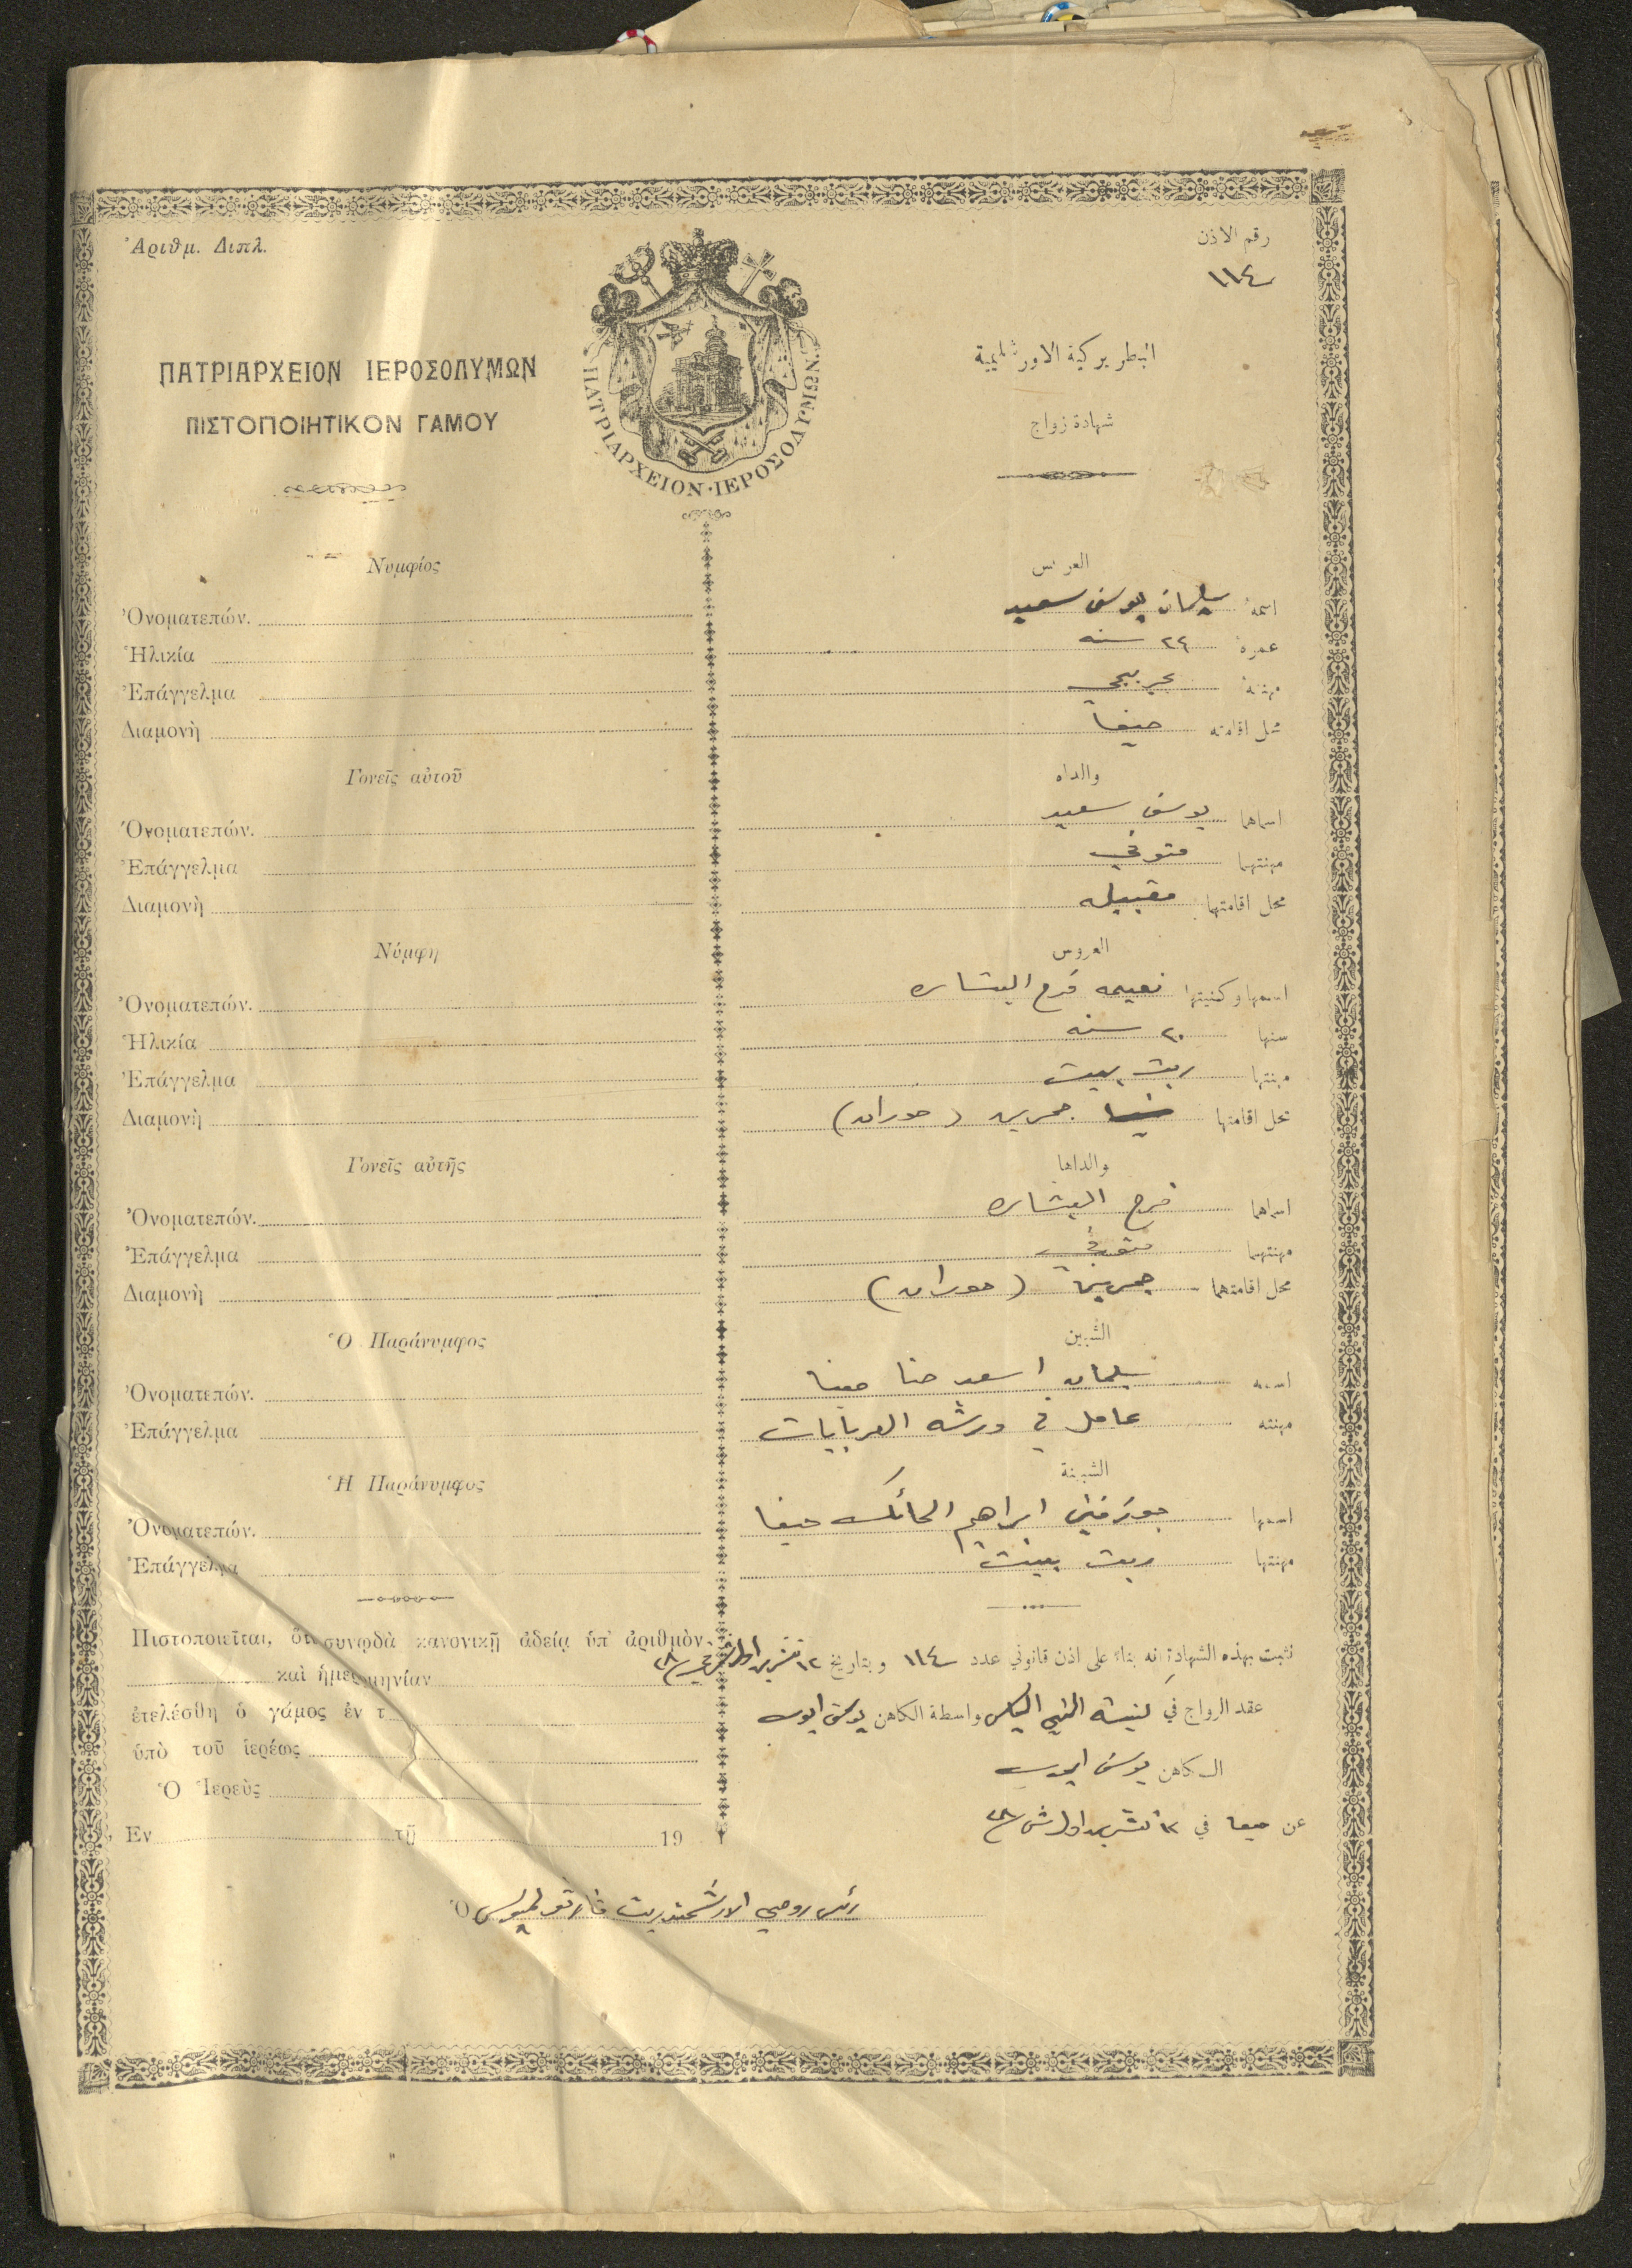 Ἀριθμ. Διπλ.
رقم الاذن
١١٤
ΠΑΤΡΙΑΡΧΕΙΟΝ ΙΕΡΟΣΟΛΥΜΩΝ
ΠΙΣΤΟΠΟΙΗΤΙΚΟΝ ΓΑΜΟΥ
ΠΑΤΡΙΑΡΧΕΙΟΝ·ΙΕΡΟΣΟΛΥΜΩΝ
البطريركية الاورشليمية
شهادة زواج
Νυμφίος
Ὀνοματεπών.
Ἡλικία
Ἐπάγγελμα
Διαμονὴ
Γονεῖς αὐτοῦ
Ὀνοματεπών.
Ἐπάγγελμα
Διαμονὴ
Νύμφη
Ὀνοματεπών.
Ἡλικία
Ἐπάγγελμα
Διαμονὴ
Γονεῖς αὐτῆς
Ὀνοματεπών.
Ἐπάγγελμα
Διαμονὴ
Ὁ Παράνυμφος
Ὀνοματεπών.
Ἐπάγγελμα
Ἡ Παράνυμφος
Ὀνοματεπών.
Ἐπάγγελμα
Πιστοποιεῖται, ὅτι συνῳδὰ κανονικῇ ἀδείᾳ ὑπ' ἀριθμὸν
καὶ ἡμερομηνίαν
ἐτελέσθη ὁ γάμος ἐν τ
ὑπὸ τοῦ ἱερέως
Ὁ Ἱερεὺς
Ἐν τῇ 19
العريس
اسمه سليمان يوسف سعيد
عمره ٢٤ سنه
مهنته
محل اقامته حيفا
والداه
اسماهما يوسف سعيد
مهنتهما متوفي
محل اقامتهما مقيبله
العروس
اسمها وكنيتها نعيمه فرح البشاره
سنها ٢٠ سنه
مهنتها ربت بيت
محل اقامتها جمرين (حوران)
والداها
اسماهما فرح البشاره
مهنتهما متوفي
محل اقامتهما جمرين (حوران)
الشبين
اسمه سليمان اسعد حنا حيفا
مهنته عامل في ورشه العربايات
الشبينة
اسمها جوزفين ابراهيم الحائك حيفا
مهنتها ربت بيت
نثبت بهذه الشهادة انه بناء على اذن قانوني عدد ١١٤ وبتاريخ ١٢ تشرين اول
عقد الزواج في كنيسة النبي الياس واسطة الكاهن يوسف ايوب
الكاهن يوسف ايوب
عن حيفا في ١٢ تشرين اول
Ὁ رئيس روحي الارشمندريت